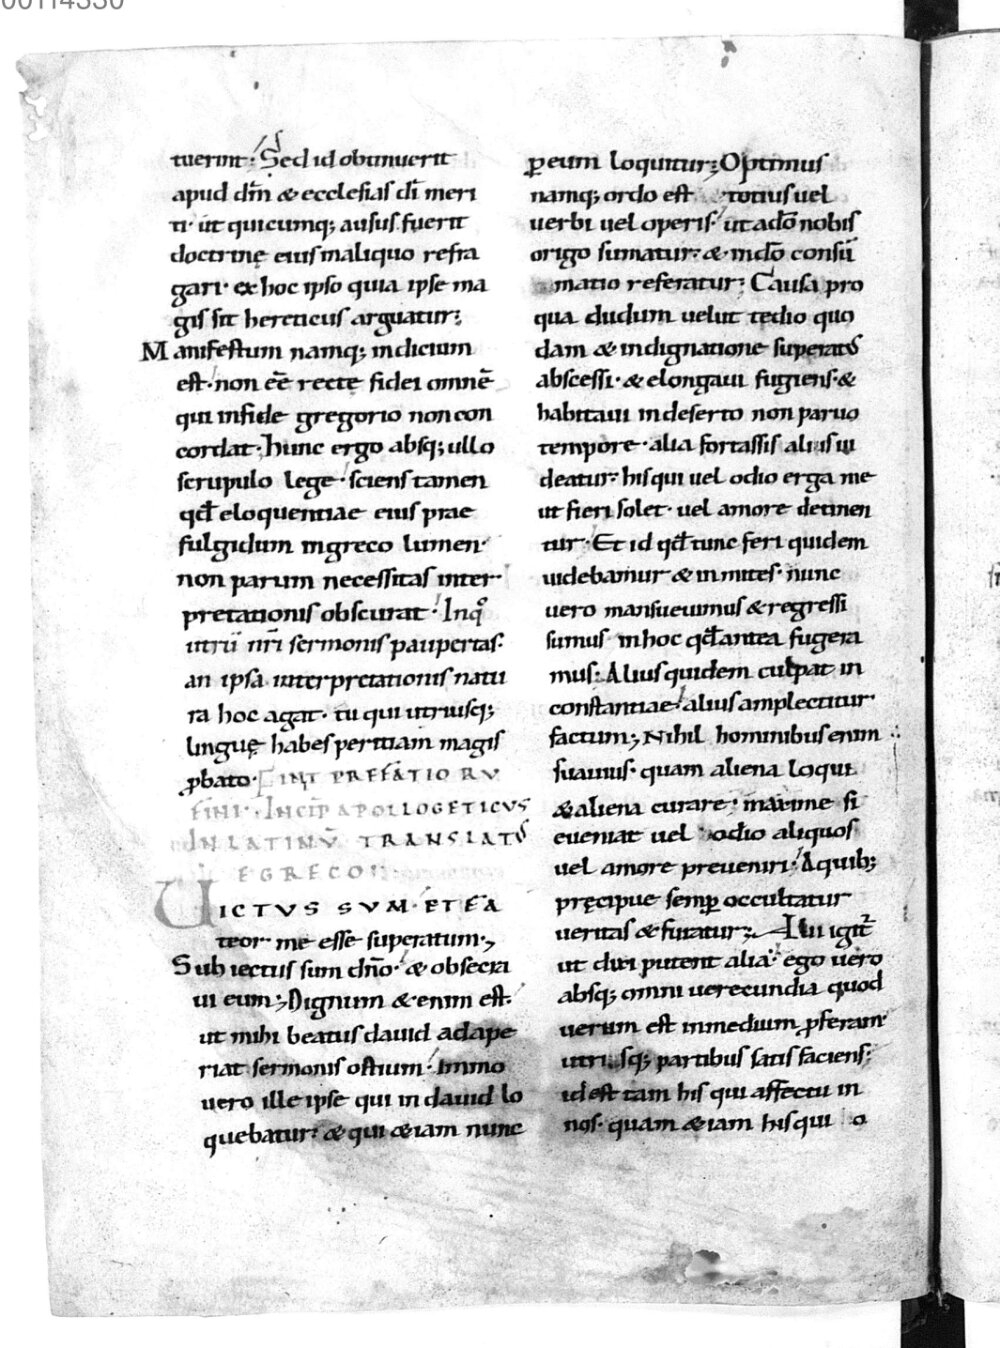 tuerint: Sed id obtinuerit
apud dm̄ & ecclesias dī meri
ti· ut quicumq; ausus fuerit
doctrinę eius inaliquo refra
gari· ex hoc ipso quia ipse ma
gis sit hereticus arguatur;
Manifestum namq; indicium
est· non eē recte fidei omnē
qui infide gregorio non con
cordat· hunc ergo absq; ullo
scrupulo lege· sciens tamen
qđ eloquentiae eius prae
fulgidum ingreco lumen·
non parum necessitas inter
pretationis obscurat· Inqͦ
utrū nr̄i sermonis paupertas·
an ipsa interpretationis natu
ra hoc agat· tu qui utriusq;
linguę habes peritiam magis
ꝓbato· FINT PREFATIO RV
FINI· INCIP̄ APOLLOGETICVS
IN LATINV̄ TRANSLATꝰ
E GRECO
UICTVS SVM· ET FA
teor me esse superatum·,
Subiectus sum dn̄o· & obsecra
ui eum; Dignum & enim est·
ut mihi beatus dauid adape
riat sermonis ostium· Immo
uero ille ipse qui in dauid lo
quebatur· & qui &iam nunc
ꝑ eum loquitur; Optimus
namq; ordo est totius uel
uerbi uel operis· ut adō nobis
origo sumatur· & indō consū
matio referatur; Causa pro
qua dudum uelut tedio quo
dam & indignatione superatꝰ
abscessi· & elongaui fugiens· &
habitaui indeserto non paruo
tempore· alia fortassis aliis ui
deatur· his qui uel odio erga me
ut fieri solet· uel amore detinen
tur· Et id qđ tunc feri quidem
uidebamur & inmites· nunc
uero mansueuimus & regressi
sumus inhoc qđ antea fugera
mus: Alius quidem culpat in
constantiae· alius amplectitur
factum; Nihil hominibus enim
suauius· quam aliena loqui
& aliena curare· maxime si
eueniat uel odio aliquos
uel amore preueniri· Aquib;
pręcipue semꝑ occultatur
ueritas & furatur; Illi igit̄
ut diui putent alia· ego uero
absq; omni uerecundia quod
uerum est inmedium ꝓferam
utrisq; partibus satis faciens·
id est tam his qui affectu in
nos· quam &iam his qui o